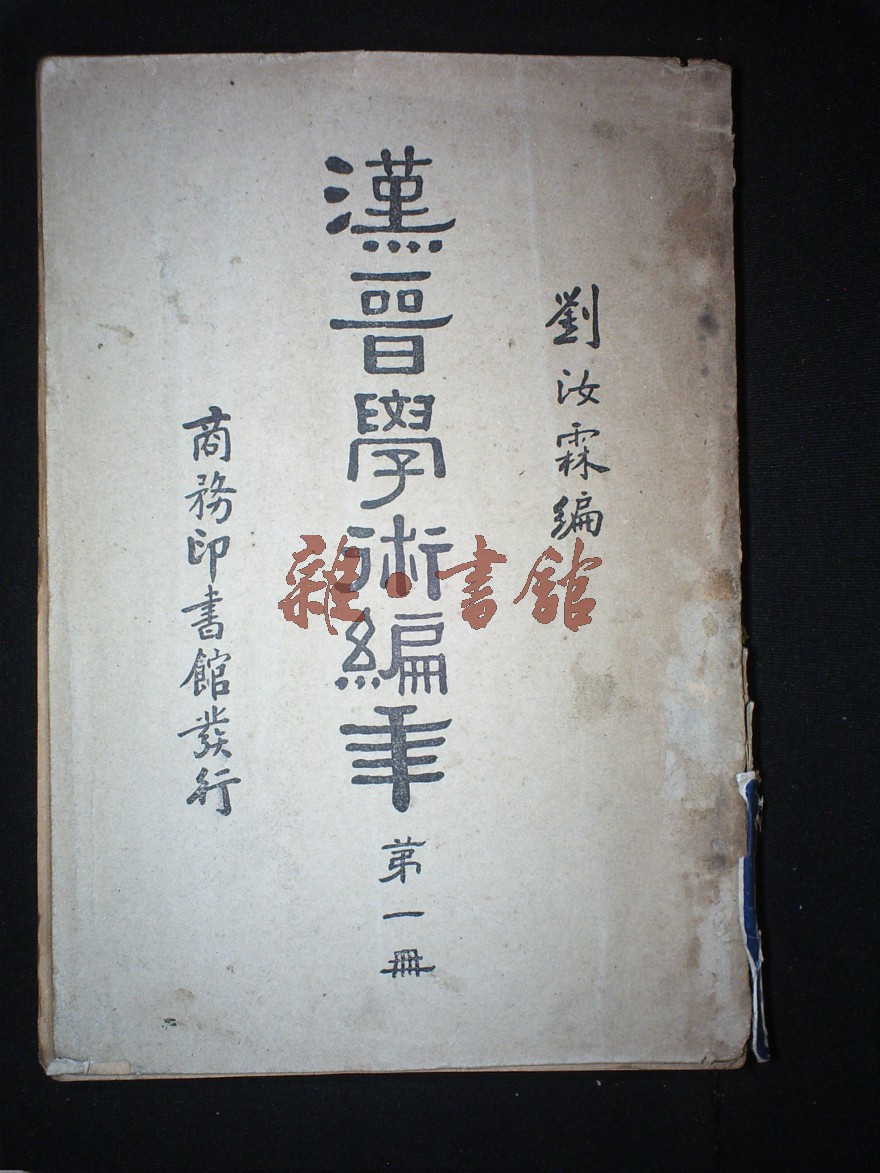 劉汝霖編
漢晉學術編年
第一冊
商務印書館發行
雜·書館